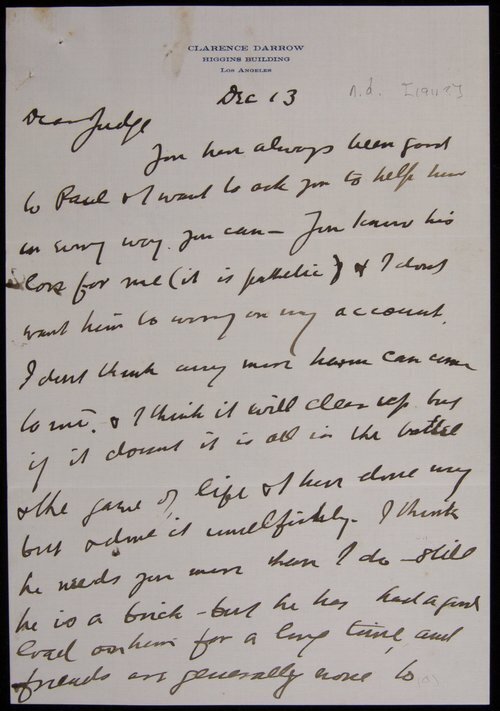 CLARENCE DARROW
HIGGINS BUILDING
LOS ANGELES
Dec 13
n.d. [1911?]
Dear Judge
You have always been good
to Paul & I want to ask you to help him
in every way you can – You know his
love for me (it is pathetic) & I dont
want him to worry on my account.
I dont think any more harm can come
to me. & I think it will clear up but
if it doesnt it is all in the battle
& the game of life & I have done my
best & done it unselfishly. I think
he needs you more than I do – still
he is a brick – but he has had a good
load on him for a long time and
friends are generally none to